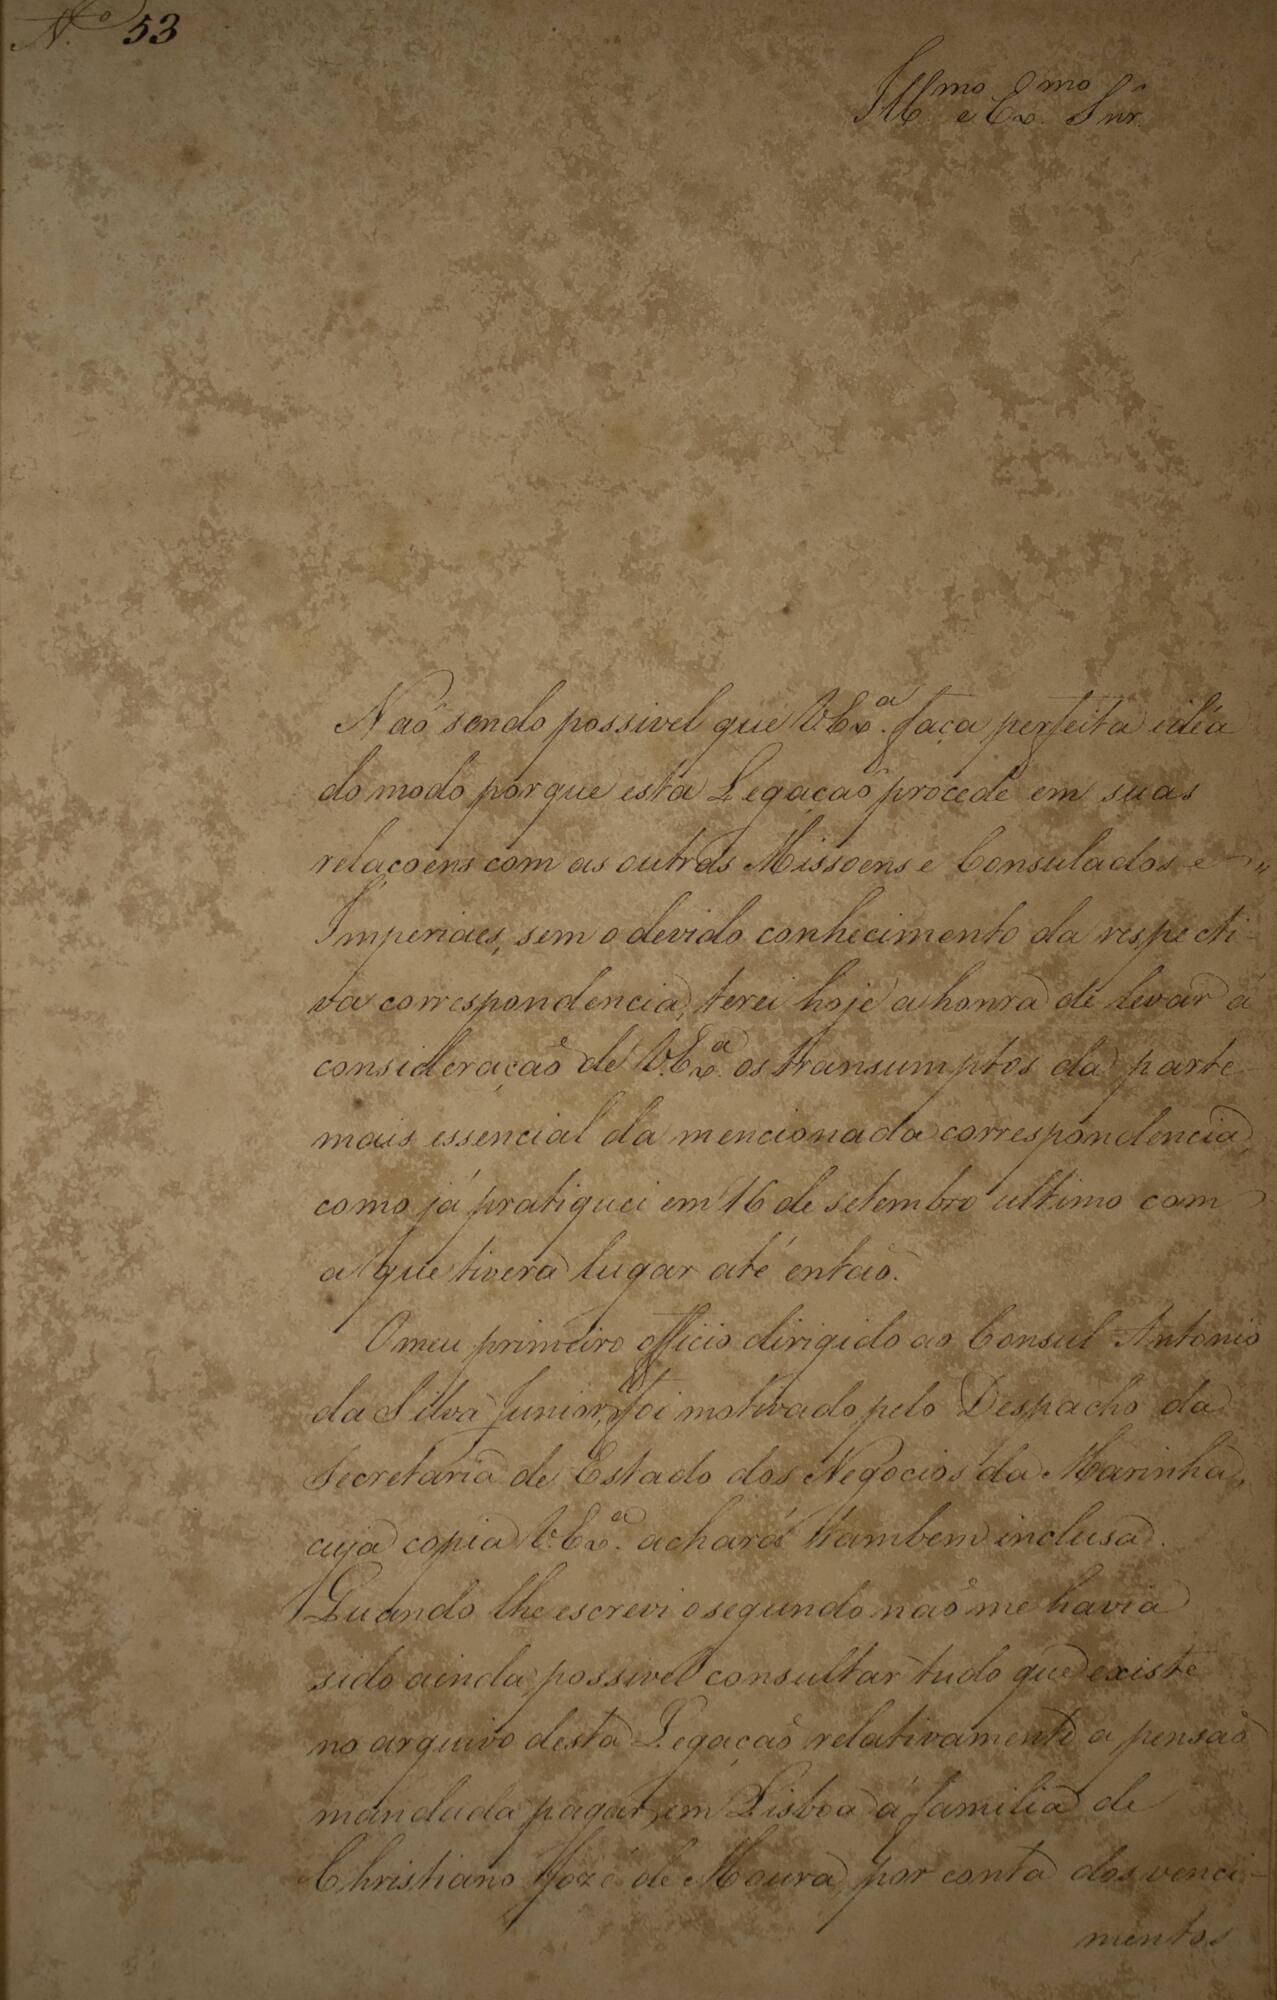 N.º 53
Ill.mo e Ex.mo Snr.
Naõ sendo possivel que V. Ex.ª faça perfeita idéa
do modo porque esta Legaçaõ procede em suas
relaçoens com as outras Missoens e Consulados e
Imperiaes, sem o devido conhecimento da respecti-
va correspondencia, terei hoje a honra de levar á
consideraçaõ de V. Ex.ª os transumptos da parte
mais essencial da mencionada correspondencia,
como já pratiquei em 16 de setembro ultimo com
a que tivera lugar até entaõ.
O meu primeiro officio dirigido ao Consul Antonio
da Silva Junior, foi motivado pelo Despacho da
Secretaria de Estado dos Negocios da Marinha,
cuja copia V. Ex.ª achará tambem inclusa.
Quando lhe escrevi o segundo naõ me havia
sido ainda possivel consultar tudo que existe
no arquivo desta Legaçaõ relativamente a pensaõ
mandada pagar em Lisboa á familia de
Christiano Jozé de Moura, por conta dos venci-
mentos